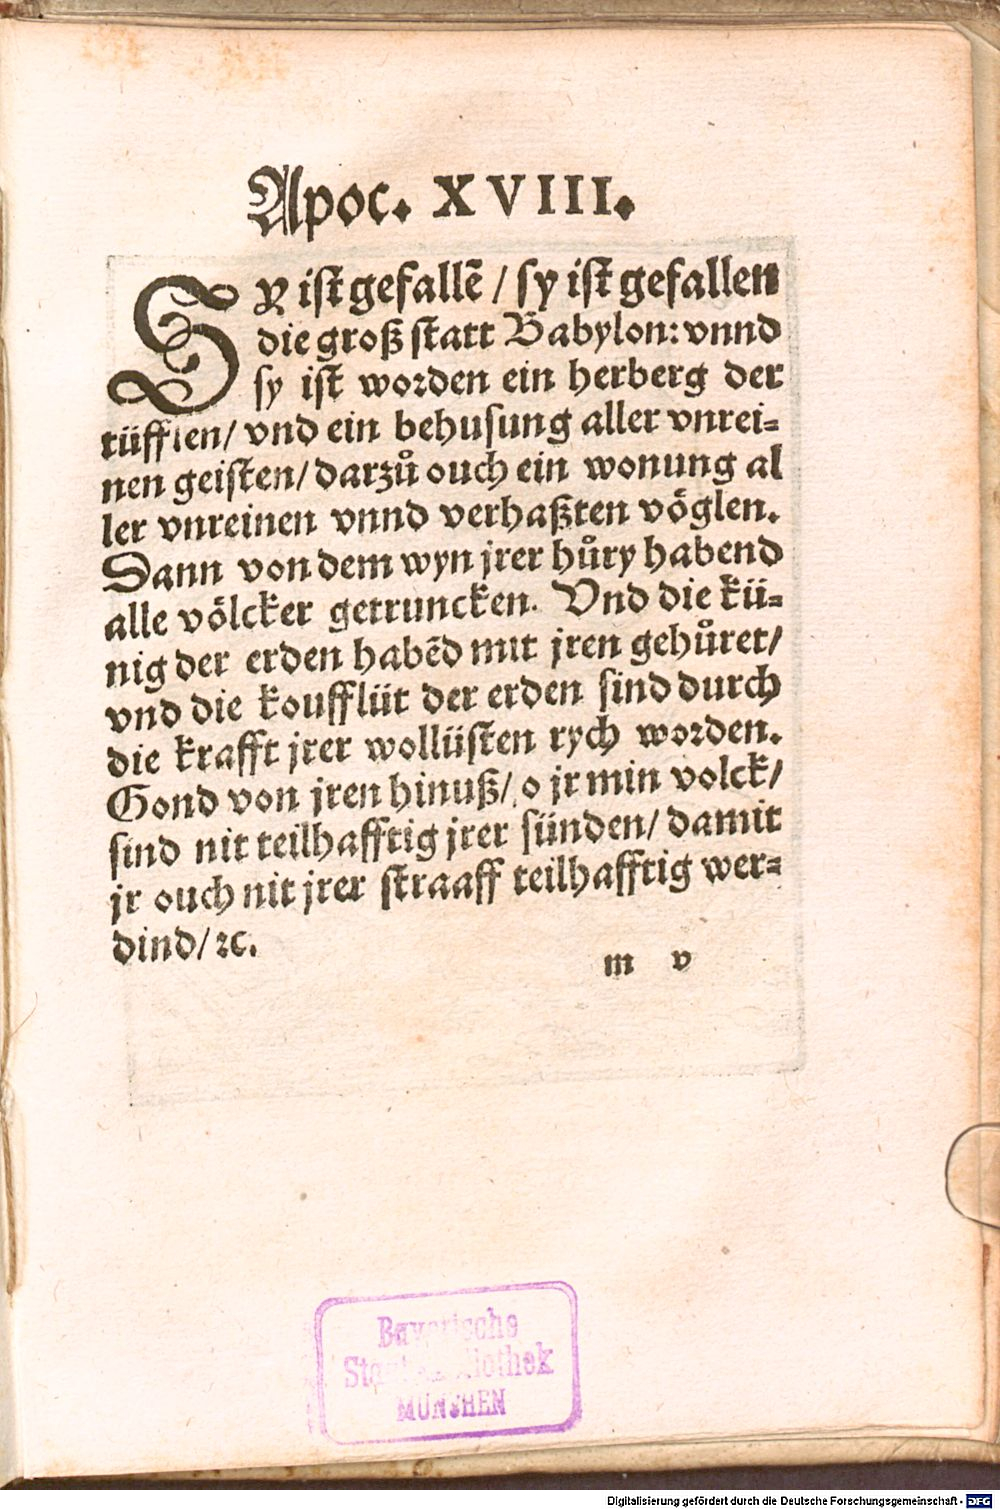 Apoc. XVIII.
SY ist gefallē / sy ist gefallen
die groß statt Babylon: vnnd
sy ist worden ein herberg der
tüfflen / vnd ein behusung aller vnrei=
nen geisten / darzů ouch ein wonung al
ler vnreinen vnnd verhaßten vöglen.
Dann von dem wyn jrer hůry habend
alle völcker getruncken. Vnd die kü=
nig der erden habēd mit jren gehůret /
vnd die koufflüt der erden sind durch
die krafft jrer wollüsten rych worden.
Gond von jren hinuß / o jr min volck /
sind nit teilhafftig jrer sünden / damit
jr ouch nit jrer straaff teilhafftig wer=
dind / ꝛc.
m v
Bayerische
Staatsbibliothek
MÜNCHEN
Digitalisierung gefördert durch die Deutsche Forschungsgemeinschaft - DFG